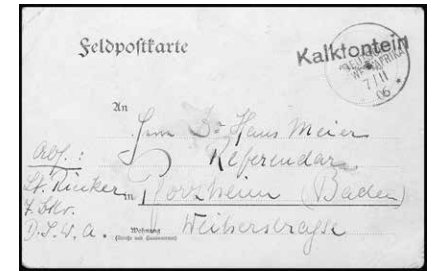 Feldpostkarte
Kalkfontein
DEUTSCH
SÜDWESTAFRIKA
7/11
06
An
Herrn Dr. Hans Meier
Referendar
in Pforzheim (Baden)
Wohnung
(Straße und Hausnummer)
Abs.:
Lt.
D.S.W.A.